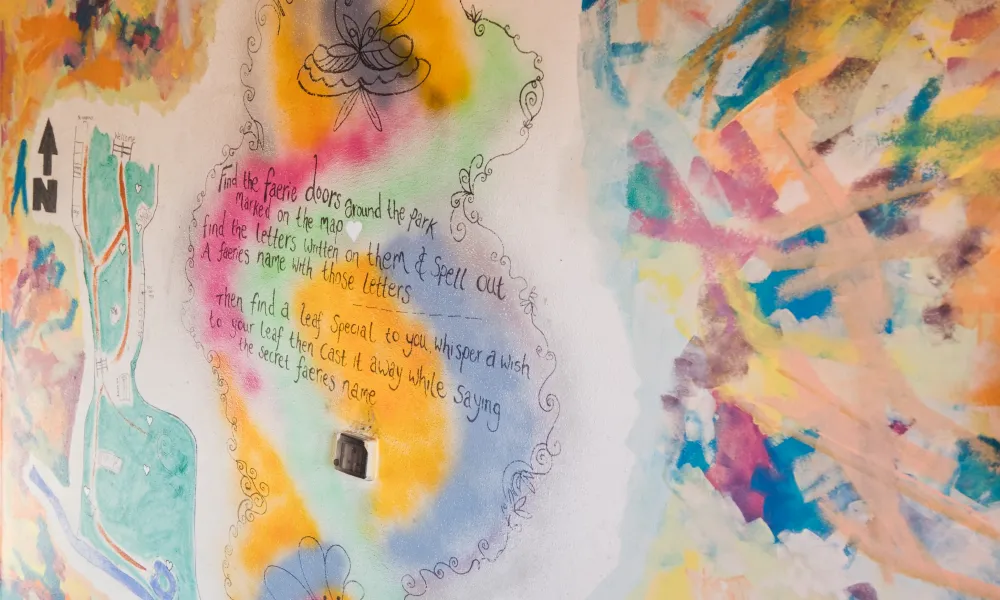 N
Find the faerie doors around the park
Marked on the map
find the letters written on them & Spell out
A faeries name with those letters
Then find a leaf Special to you, whisper a wish
to your leaf then Cast it away while Saying
the secret faeries name